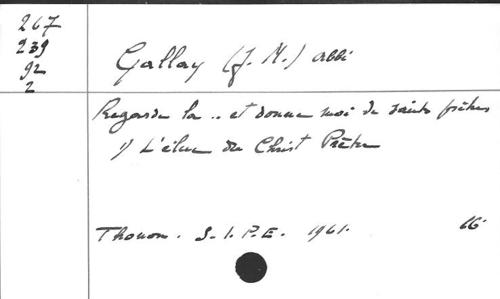 267
239
92
2
Gallay (J. M.) abbé
Regarde la .. et donne moi de saints prêtres
1) L'élue du Christ Prêtre
Thonon. S. I. P. E. 1961. 16°